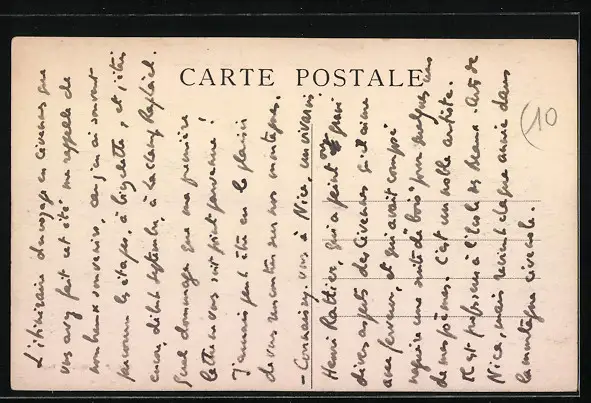 CARTE POSTALE
10
L'itinéraire du voyage en Cévennes que
vous avez fait cet été me rappelle de
nombreux souvenirs, car j'en ai souvent
parcouru les étapes, à bicyclette, et j'étais
encore, début septembre, à
Quel dommage que ma première
lettre ne vous soit point parvenue !
J'aurais peut-être eu le plaisir
de vous rencontrer sur nos montagnes.
- Connaissez-vous à Nice, un vivarois
Henri Rattier, qui a peint
divers aspects des Cévennes qu'il aime
avec ferveur, et qui avait composé
naguère une suite de bois pour quelques uns
de mes poèmes. C'est un noble artiste.
Il est professeur à l'Ecole des Beaux-Arts de
Nice, mais revient chaque année dans
la montagne cévenole.